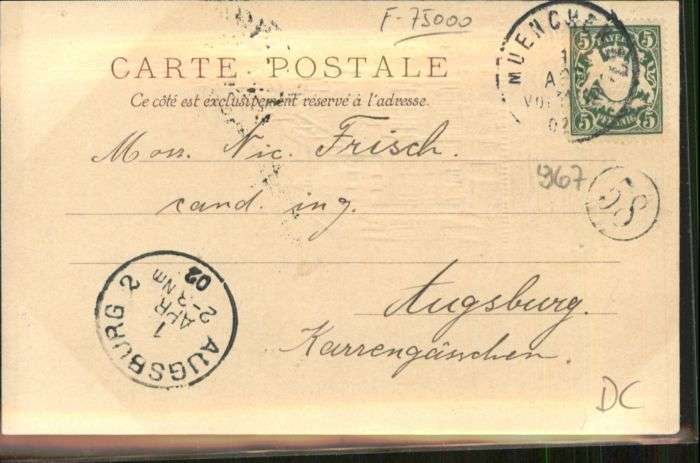 F-75000
CARTE POSTALE
Ce côté est exclusivement réservé à l'adresse.
MUENCHEN
02
5 BAYERN 5
5 PFENNIG 5
Mon. Nic. Frisch.
cand. ing.
967
58
Augsburg.
Karrengässchen.
AUGSBURG 2
1
APR
2-3 Nm
02
DC